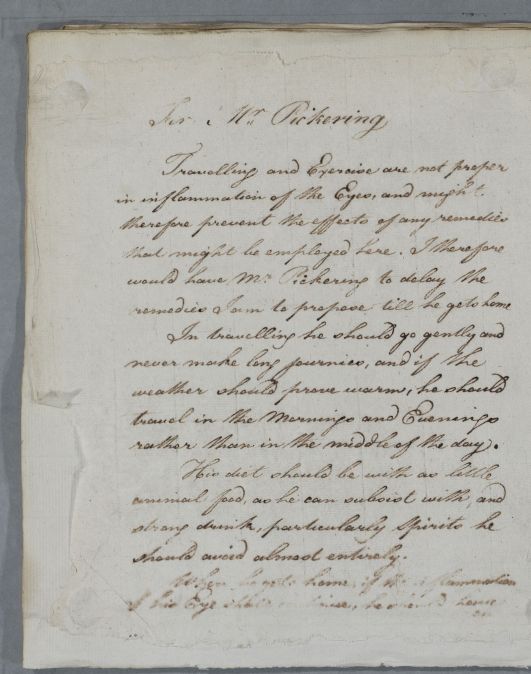 For Mr. Pickering
Travelling and Exercise are not proper
in inflammation of the Eyes, and might
therefore prevent the effects of any remedies
that might be employed here. I therefore
would have Mr. Pickering to delay the
remedies I am to propose till he gets home
In travelling he should go gently and
never make long journies, and if the
weather should prove warm, he should
travel in the Mornings and Evenings
rather than in the middle of the day.
His diet should be with as little
animal food, as he can subsist with, and
strong drink, particularly Spirits he
should avoid almost entirely.
When he gets home, if the inflammation
of his Eye shall continue, he should have